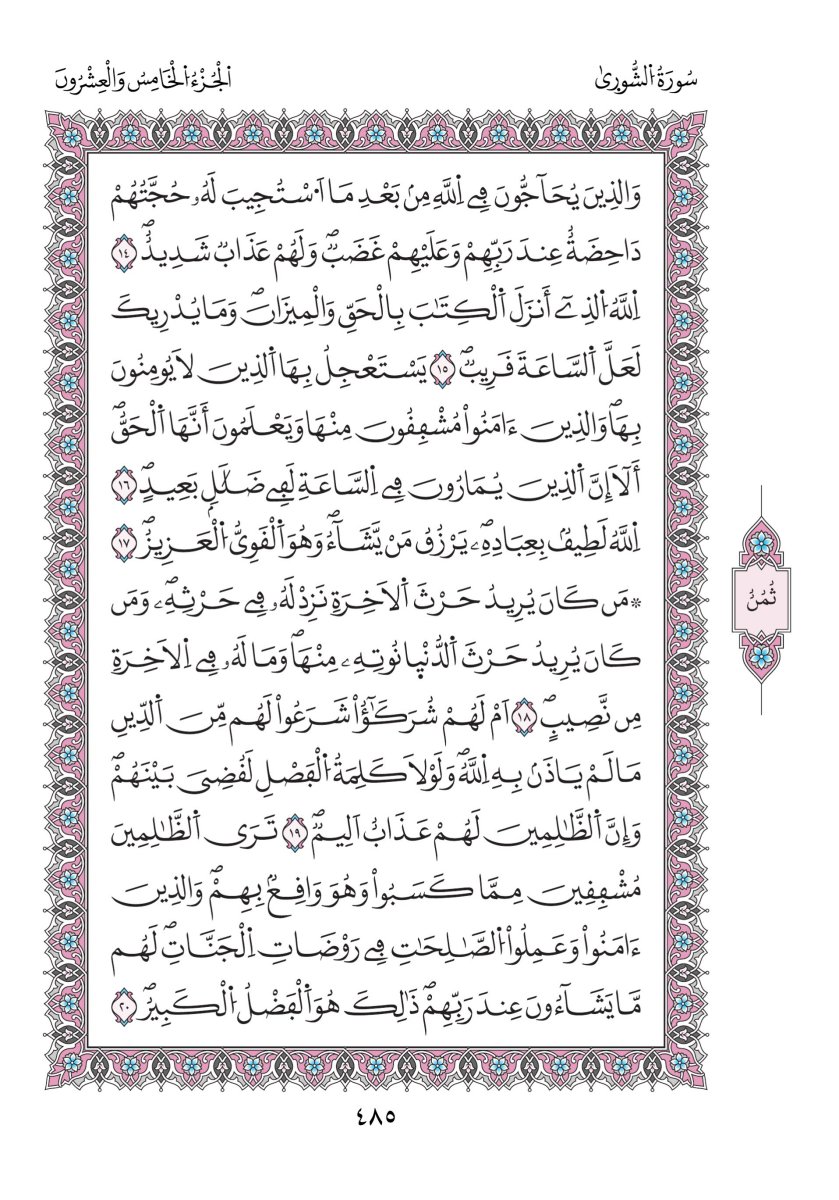 سُورَةُ اُ۬لشُّور۪يٰ
اَ۬لْجُزْءُ اُ۬لْخَامِسُ وَالْعِشْرُونَ
وَالذِينَ يُحَآجُّونَ فِے اِ۬للَّهِ مِنۢ بَعْدِ مَا اَ۟سْتُجِيبَ لَهُۥ حُجَّتُهُمْ
دَاحِضَةٌ عِندَ رَبِّهِمْ وَعَلَيْهِمْ غَضَبٞۖ وَلَهُمْ عَذَابٞ شَدِيدٌۖ ١٤
اِ۬للَّهُ اُ۬لذِےٓ أَنزَلَ اَ۬لْكِتَٰبَ بِالْحَقِّ وَالْمِيزَانَۖ وَمَا يُدْرِيكَ
لَعَلَّ اَ۬لسَّاعَةَ قَرِيبٞۖ ١٥ يَسْتَعْجِلُ بِهَا اَ۬لذِينَ لَا يُومِنُونَ
بِهَاۖ وَالذِينَ ءَامَنُواْ مُشْفِقُونَ مِنْهَا وَيَعْلَمُونَ أَنَّهَا اَ۬لْحَقُّۖ
أَلَآ إِنَّ اَ۬لذِينَ يُمَارُونَ فِے اِ۬لسَّاعَةِ لَفِے ضَلَٰلِۢ بَعِيدٍۖ ١٦
اِ۬للَّهُ لَطِيفُۢ بِعِبَادِهِۦۖ يَرْزُقُ مَنْ يَّشَآءُۖ وَهُوَ اَ۬لْقَوِيُّ اُ۬لْعَزِيزُۖ ١٧
۞مَن كَانَ يُرِيدُ حَرْثَ اَ۬لَاخِرَةِ نَزِدْ لَهُۥ فِے حَرْثِهِۦۖ وَمَن
كَانَ يُرِيدُ حَرْثَ اَ۬لدُّنْي۪ا نُوتِهِۦ مِنْهَاۖ وَمَا لَهُۥ فِے اِ۬لَاخِرَةِ
مِن نَّصِيبٍۖ ١٨ اَمْ لَهُمْ شُرَكَٰٓؤُاْ شَرَعُواْ لَهُم مِّنَ اَ۬لدِّينِ
مَا لَمْ يَاذَنۢ بِهِ اِ۬للَّهُۖ وَلَوْلَا كَلِمَةُ اُ۬لْفَصْلِ لَقُضِيَ بَيْنَهُمْۖ
وَإِنَّ اَ۬لظَّٰلِمِينَ لَهُمْ عَذَابٌ اَلِيمٞۖ ١٩ تَرَى اَ۬لظَّٰلِمِينَ
مُشْفِقِينَ مِمَّا كَسَبُواْ وَهُوَ وَاقِعُۢ بِهِمْۖ وَالذِينَ
ءَامَنُواْ وَعَمِلُواْ اُ۬لصَّٰلِحَٰتِ فِے رَوْضَاتِ اِ۬لْجَنَّاتِۖ لَهُم
مَّا يَشَآءُونَ عِندَ رَبِّهِمْۖ ذَٰلِكَ هُوَ اَ۬لْفَضْلُ اُ۬لْكَبِيرُۖ ٢٠
ثُمُنُ
٤٨٥